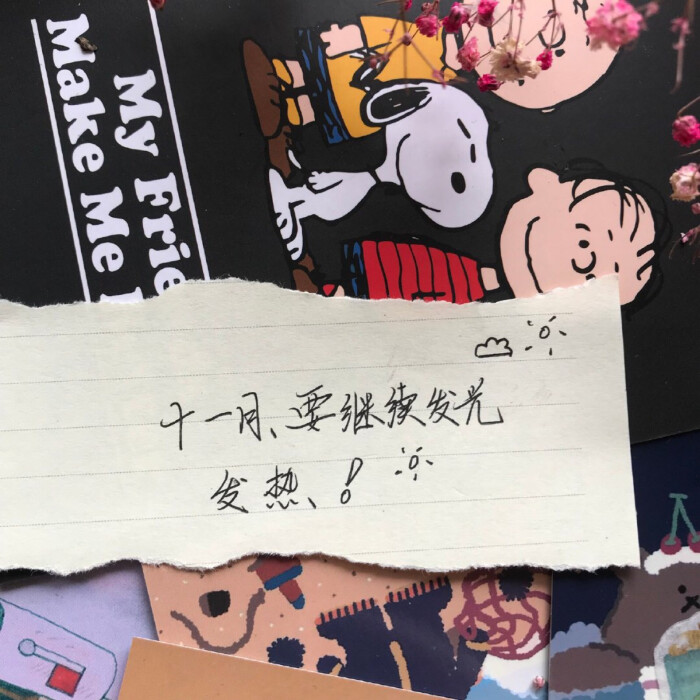 My Frie
Make Me
十一月、要继续发光
发热、!